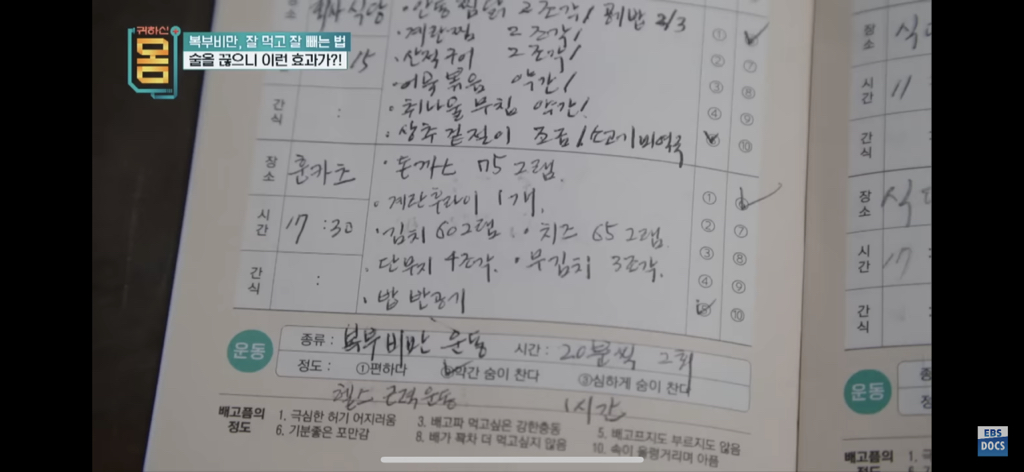 귀하신 몸
복부비만, 잘 먹고 잘 빼는 법
술을 끊으니 이런 효과가?!
장소 회사식당
· 안동찜닭 2조각/ 흰밥 2/3
· 계란찜 2조각/
· 산적구이 2조각/
15
· 어묵볶음 약간/
간식 :
· 취나물무침 약간/
· 상추겉절이 조금/소고기미역국
① ② ③ ④ ⑦ ⑧ ⑨ ⑩
장소
· 돈까스 75그램.
· 계란후라이 1개.
시간 17:30
· 김치 60그램 · 치즈 65그램.
· 단무지 4조각. · 무김치 3조각.
간식 :
· 밥 반공기
① ② ③ ④ ⑦ ⑧ ⑨ ⑩
운동
종류 : 복부비만 운동 시간 : 20분씩 2회
정도 : ①편하다 ②약간 숨이 찬다 ③심하게 숨이 찬다
헬스 근력운동 1시간
배고픔의 정도
1. 극심한 허기 어지러움 3. 배고파 먹고싶은 강한충동 5. 배고프지도 부르지도 않음
6. 기분좋은 포만감 8. 배가 꽉차 더 먹고싶지 않음 10. 속이 울렁거리며 아픔
장소 식
시간 11
간식
장소 식
시간 17
간식
운동
배고픔의 정도
1. 극
6. 기
EBS
DOCS